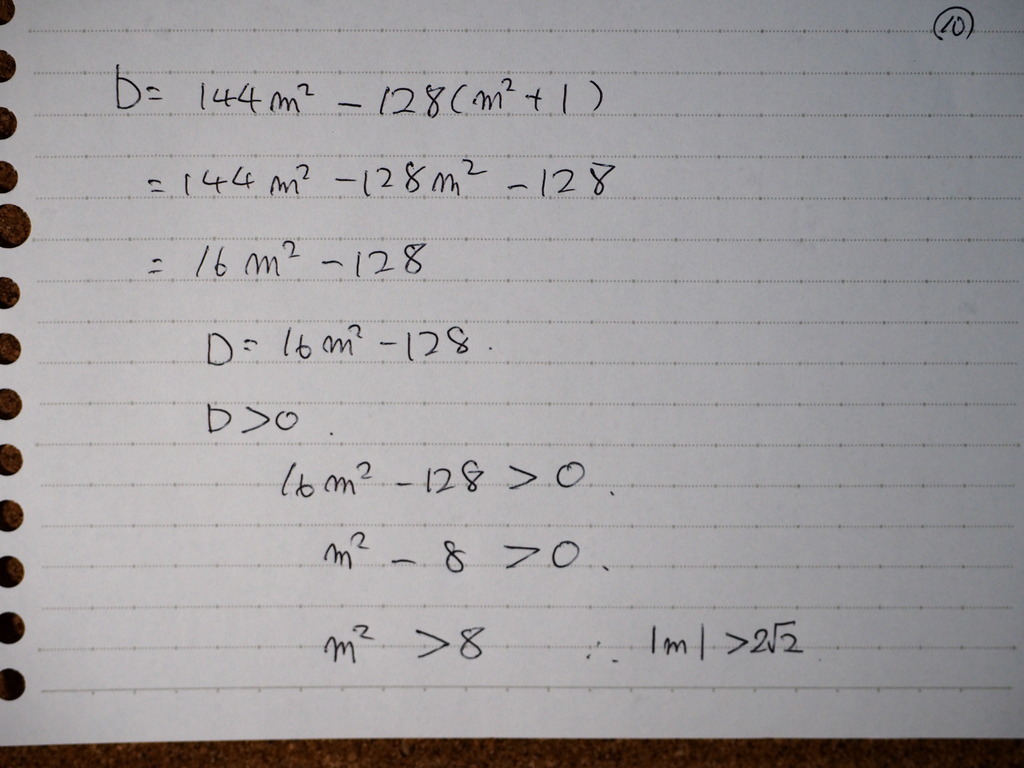 ⑩
D= 144m² - 128(m² + 1)
= 144m² - 128m² - 128
= 16m² - 128
D= 16m² - 128.
D>0.
16m² - 128 > 0.
m² - 8 > 0.
m² > 8 ∴ |m| > 2√2